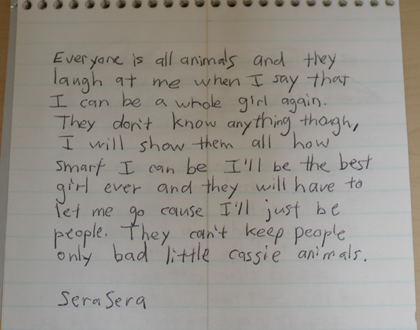 Everyone is all animals and they
laugh at me when I say that
I can be a whole girl again.
They don't know anything though,
I will show them all how
smart I can be I'll be the best
girl ever and they will have to
let me go cause I'll just be
people. They can't keep people
only bad little cassie animals.
SeraSera